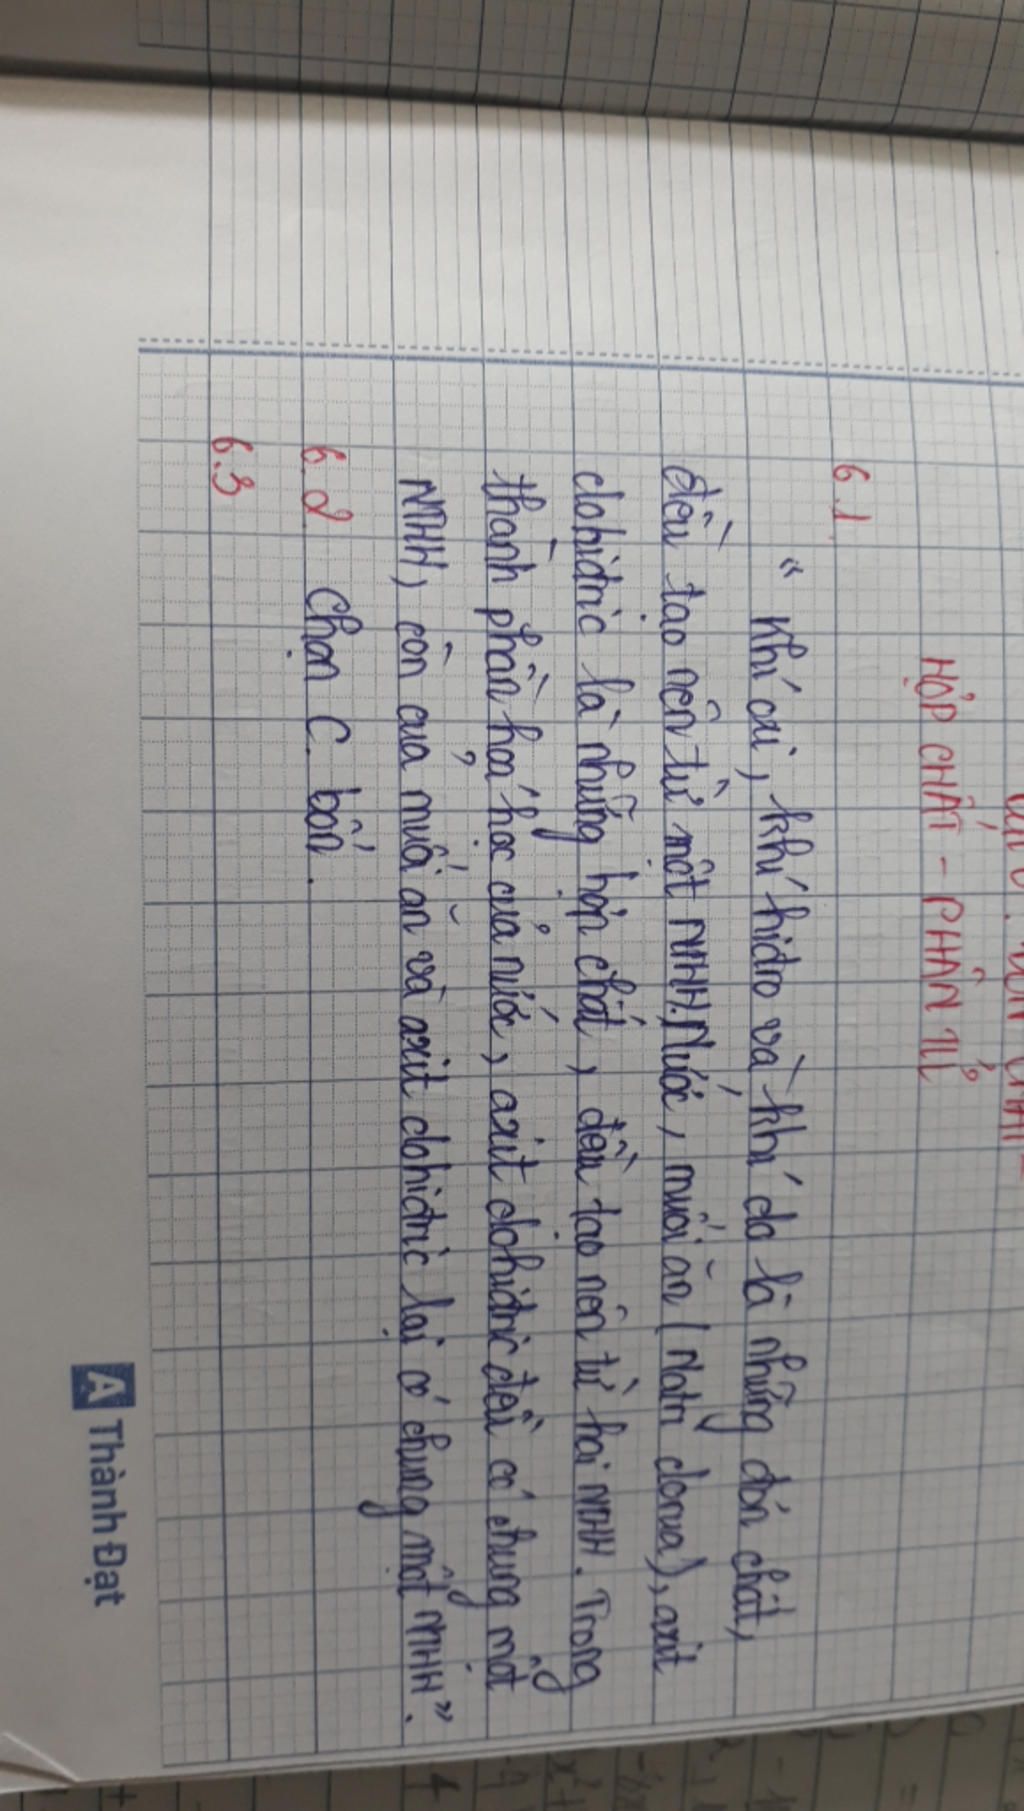 HỢP CHẤT - PHÂN TỬ
6.1
" Khí oxi, khí hidro và khí clo là những đơn chất,
đều tạo nên từ một NTHH. Nước, muối ăn (Natri clorua), axit
clohiđric là những hợp chất, đều tạo nên từ hai NTHH. Trong
thành phần hoá học của nước, axit clohiđric đều có chung một
NTHH, còn của muối ăn và axit clohiđric lại có chung một NTHH".
6.2 Chọn C. bốn.
6.3
A Thành Đạt